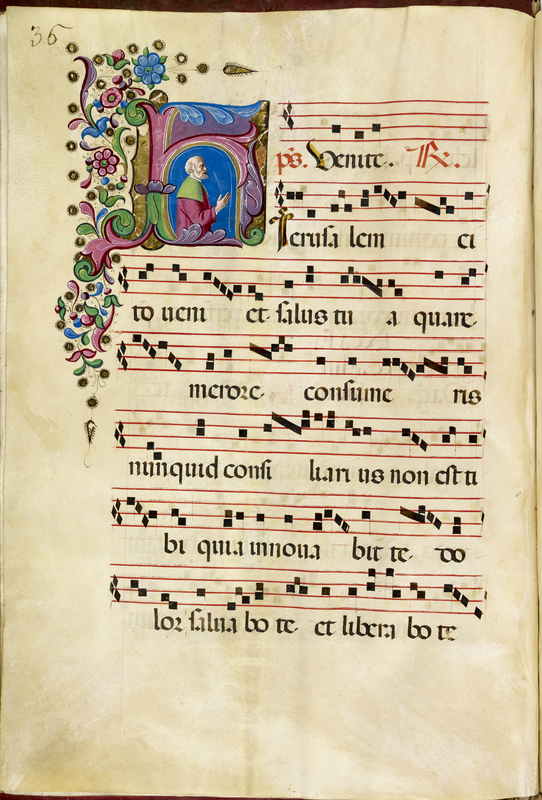 36
ps. Venite. R.
Ierusa lem ci
to ueni et salus tu a quare
merore consume ris
nunquid consi liari us non est ti
bi quia innoua bit te do
lor salua bo te et libera bo te